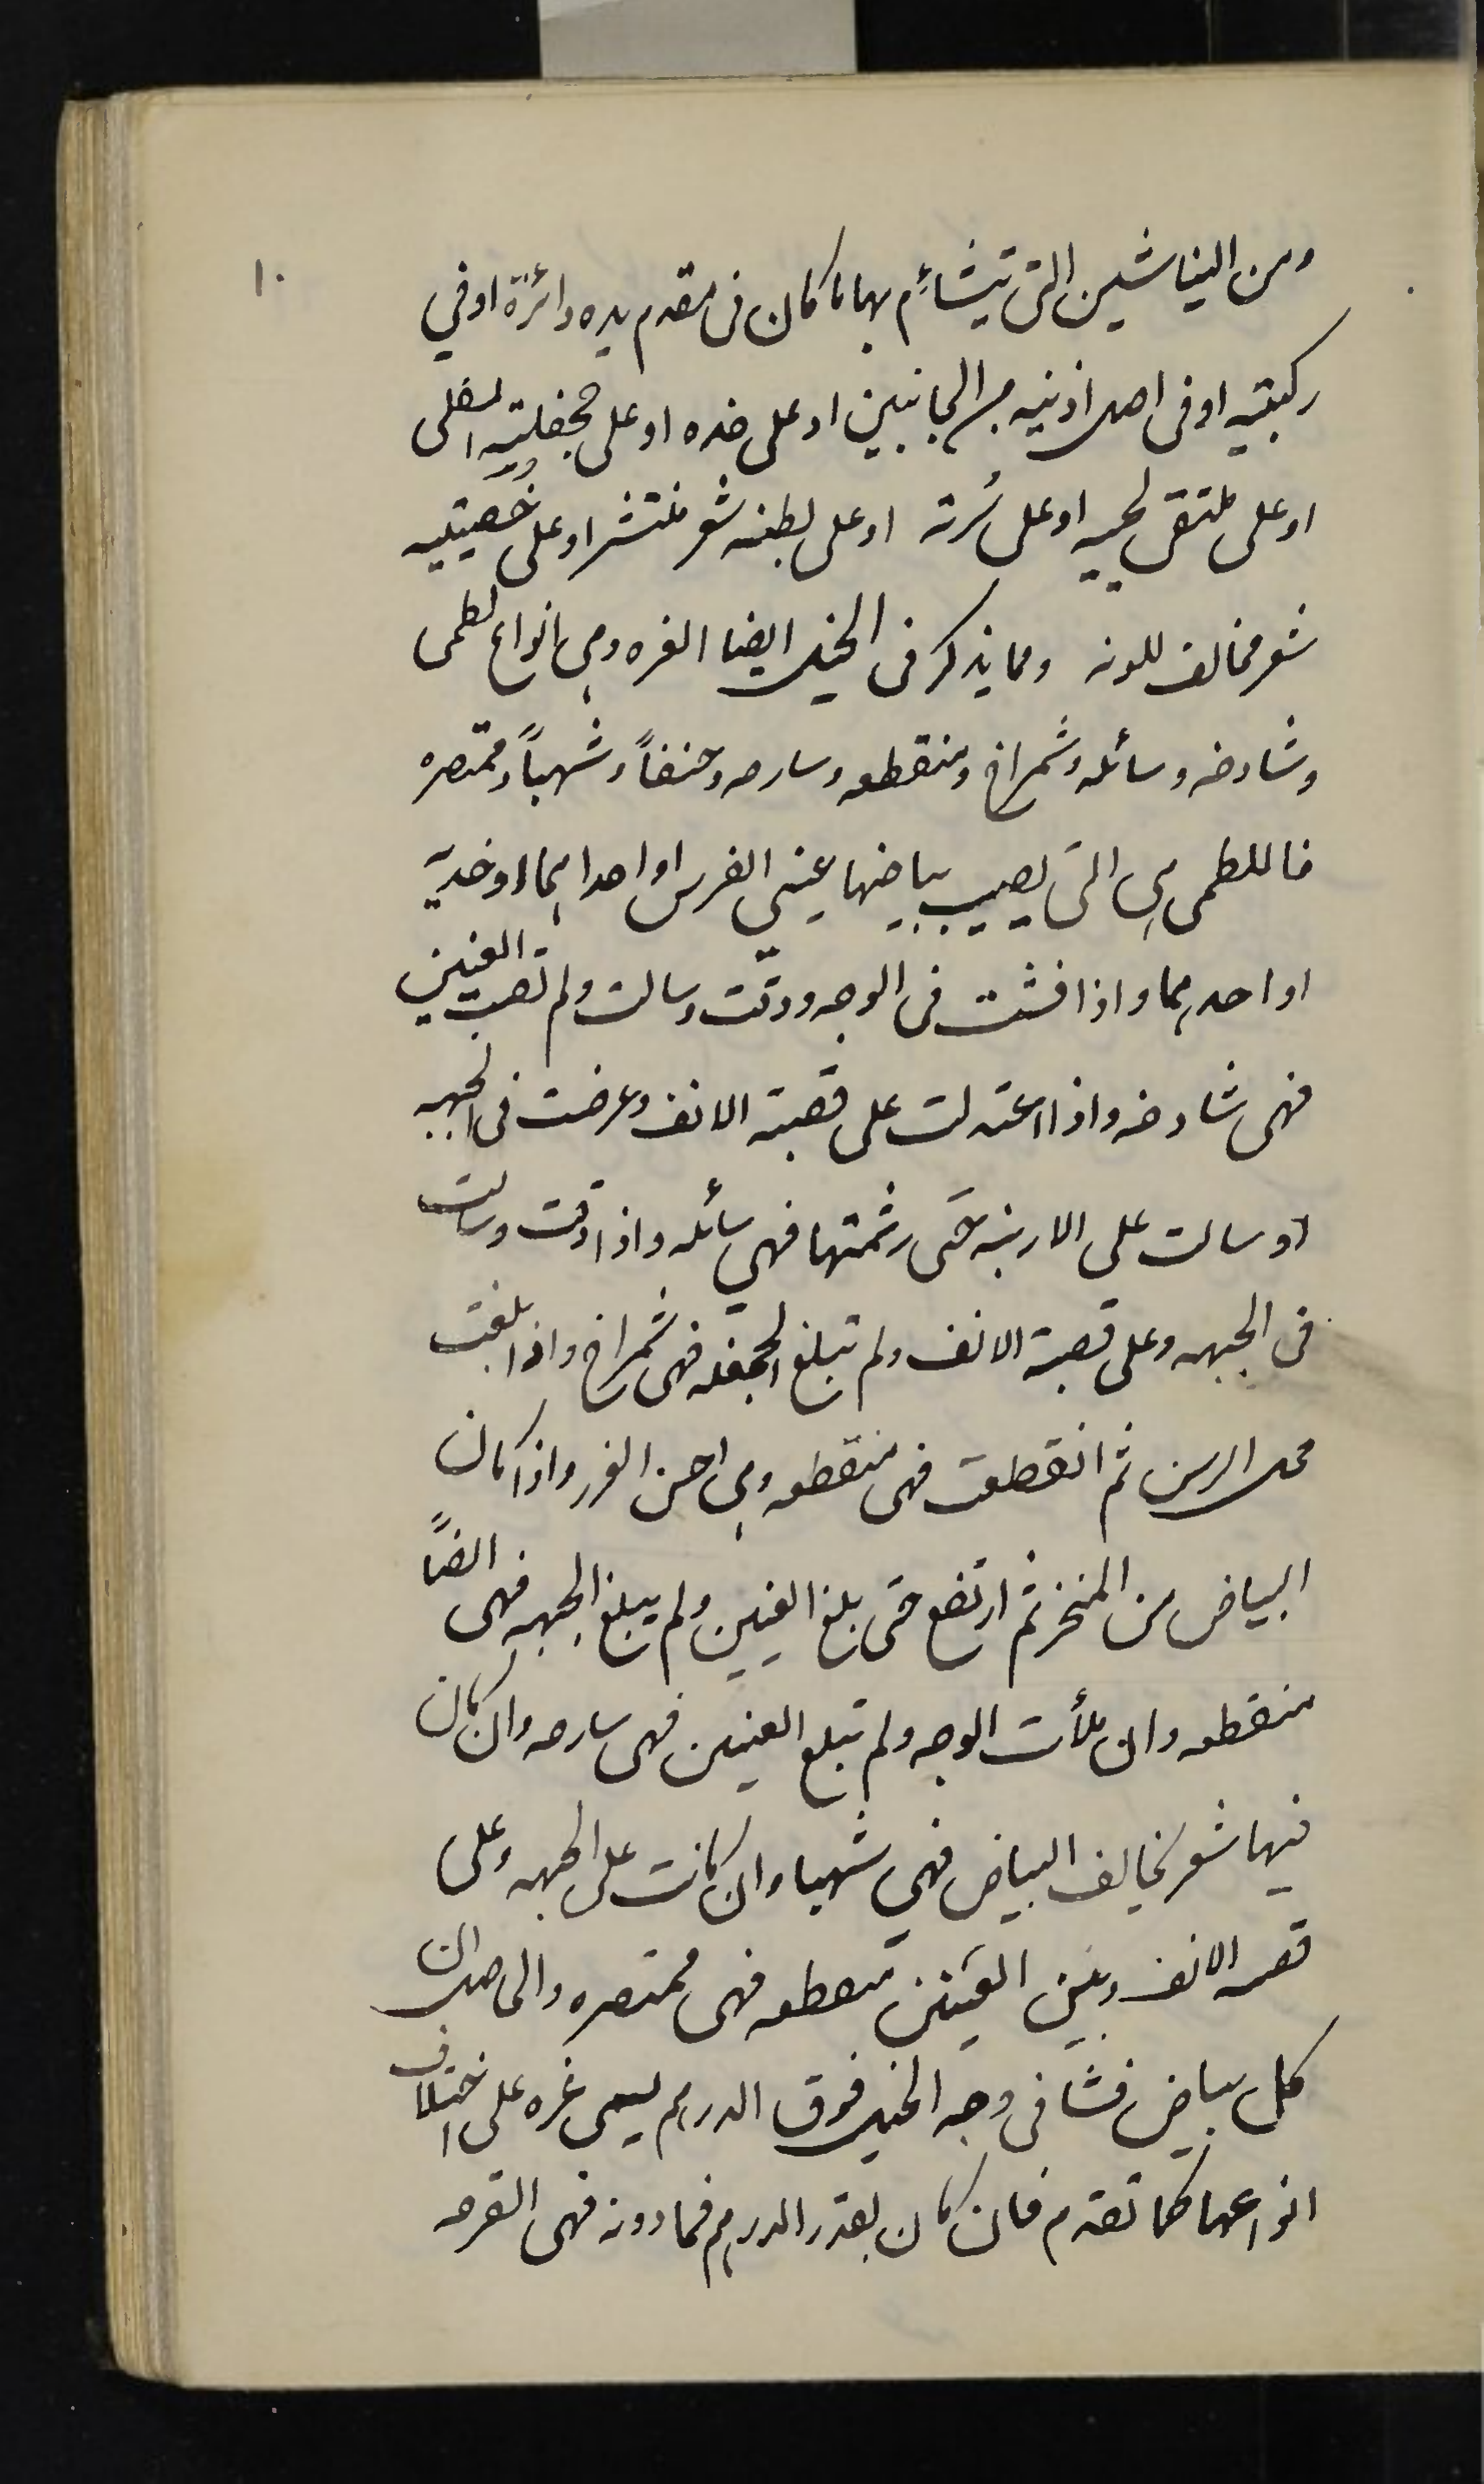 ١٠
ومن النياشين التى يتشاءم بها ما كان فى مقدم يده دائرة او في
ركبتيه او فى اصل اذنيه من الجانبين او على خده او على جحفلتيه السفلى
او على ملتقى لحييه او على سُرته او على بطنه شعر منتشر او على خصيتيه
شعر مخالف للونه ومما يذكر فى الخيل ايضا الغره وهى انواع لطمى
وشادخه وسائله وشمراخ ومنقطعه وسارحه وحنفاً وشهباً ومتمصره
فاللطمى هى التى يصيب بياضها عينى الفرس او احداهما او خديه
او احدهما واذا فشت فى الوجه ودقت وسالت ولم تصب العينين
فهى شادخه واذا اعتدلت على قصبة الانف وعرضت فى الجبهه
او سالت على الارنبه حتى رثمتها فهى سائله واذا دقت وسالت
فى الجبهه وعلى قصبة الانف ولم تبلغ الجحفله فهى شمراخ واذا بلغت
محل الرسن ثم انقطعت فهى منقطعه وهى احسن الغرر واذا كان
البياض من المنخر ثم ارتفع حتى بلغ العينين ولم يبلغ الجبهه فهى ايضاً
منقطعه وان ملأت الوجه ولم تبلغ العينين فهى سارحه وان كان
فيها شعر يخالف البياض فهى شهباء وان كانت على الجبهه وعلى
قصبة الانف وبين العينين منقطعه فهى متمصره والحاصل ان
كل بياض فشا فى وجه الخيل فوق الدرهم يسمى غره على اختلاف
انواعها كما تقدم فان كان بقدر الدرهم فما دونه فهى القرحه